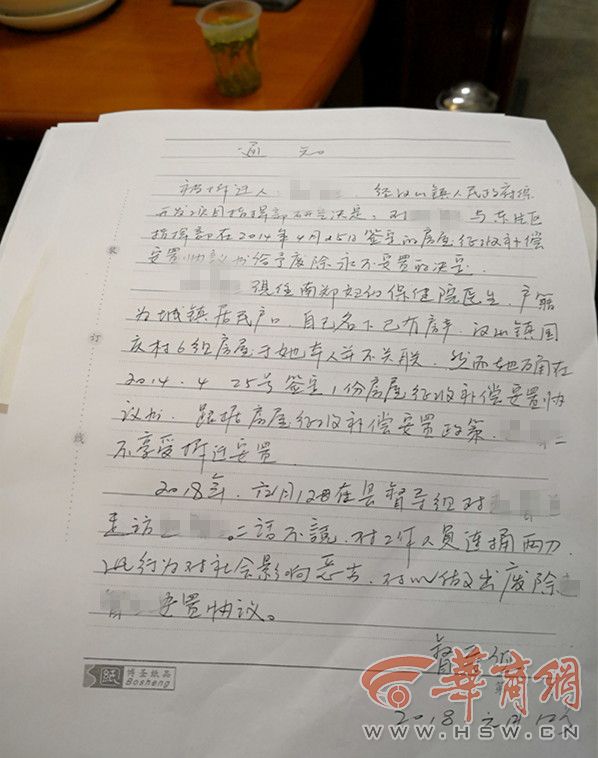 通知
被拆迁人 经汉山镇人民政府
开发项目指挥部研究决定，对 与东片区
指挥部在2014年4月25日签定的房屋征收补偿
安置协议书给予废除永不安置的决定.
现任南郑妇幼保健院医生，户籍
为城镇居民户口，自己名下已有房产，汉山镇国
庆村6组房屋于她本人并不关联，然而她确在
2014.4 25号签定1份房屋征收补偿安置协
议书，跟据房屋征收补偿安置政策，
不享受拆迁安置
2018年，六月12日在县督导组对
走访 二话不说，对工作人员连捅两刀
此行为对社会影响恶劣，对 做出废除
安置协议。
2018
装
订
线
纸
博圣纸品
Bosheng
華商網
WWW.HSW.CN